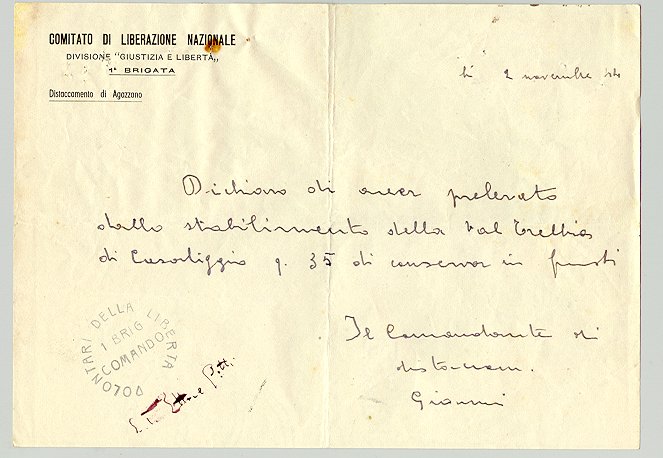 COMITATO DI LIBERAZIONE NAZIONALE
DIVISIONE "GIUSTIZIA E LIBERTÀ„
1ª BRIGATA
Distaccamento di Agazzano
li 2 novembre
Dichiaro di aver prelevato
dallo stabilimento della Val Trebbia
di Casaliggio q. 35 di conserva in fusti
Il Comandante di
distaccam.
Gianni
VOLONTARI DELLA LIBERTA
1 BRIG
COMANDO